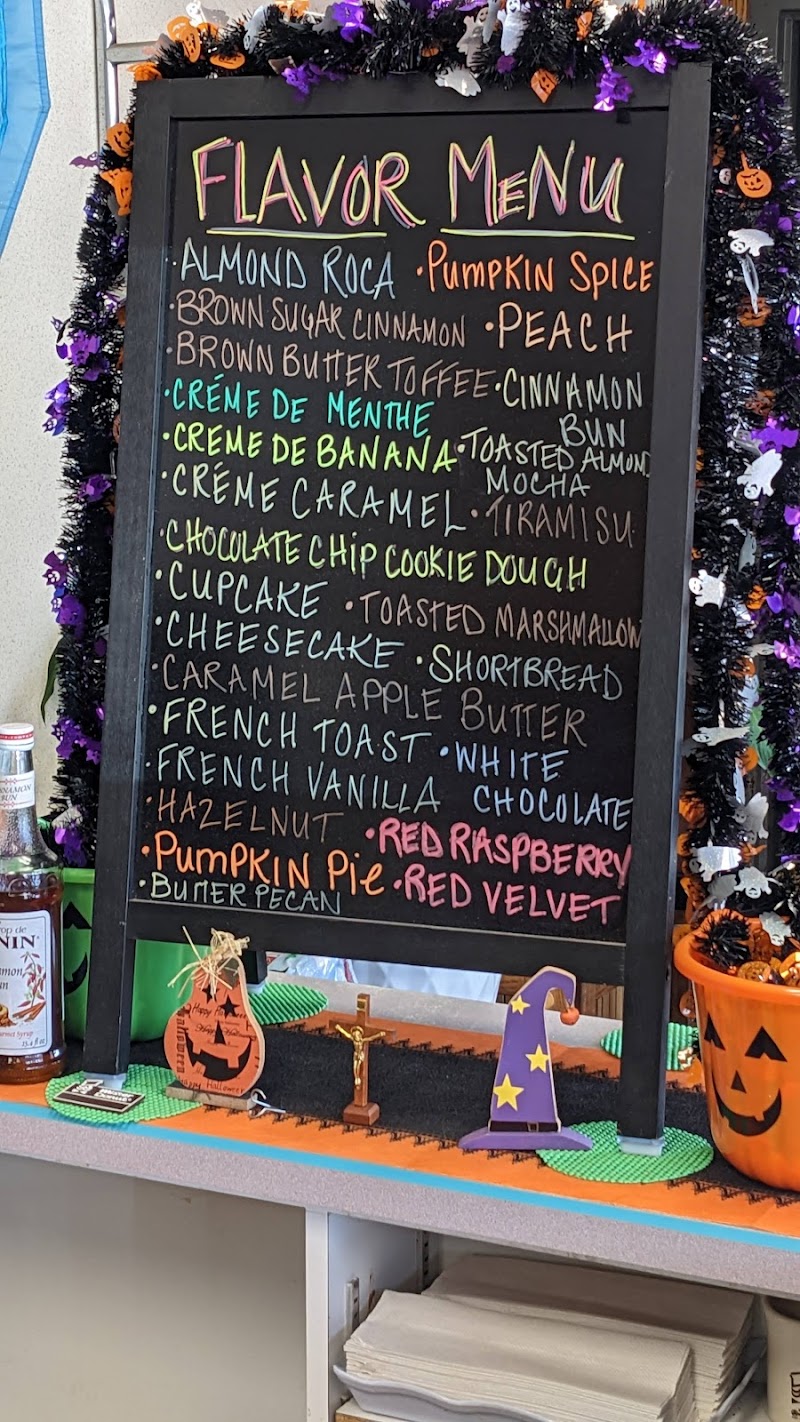 FLAVOR MENU
·ALMOND ROCA ·PUMPKIN SPICE
·BROWN SUGAR CINNAMON ·PEACH
·BROWN BUTTER TOFFEE ·CINNAMON BUN
·CRÉME DE MENTHE
·CREME DE BANANA ·TOASTED ALMOND MOCHA
·CRÉME CARAMEL ·TIRAMISU
·CHOCOLATE CHIP COOKIE DOUGH
·CUPCAKE ·TOASTED MARSHMALLOW
·CHEESECAKE ·SHORTBREAD
·CARAMEL APPLE BUTTER
·FRENCH TOAST ·WHITE CHOCOLATE
·FRENCH VANILLA
·HAZELNUT ·RED RASPBERRY
·PUMPKIN PIE ·RED VELVET
·BUTTER PECAN
NNAMON
BUN
op de
NIN
amon
un
Happy Halloween